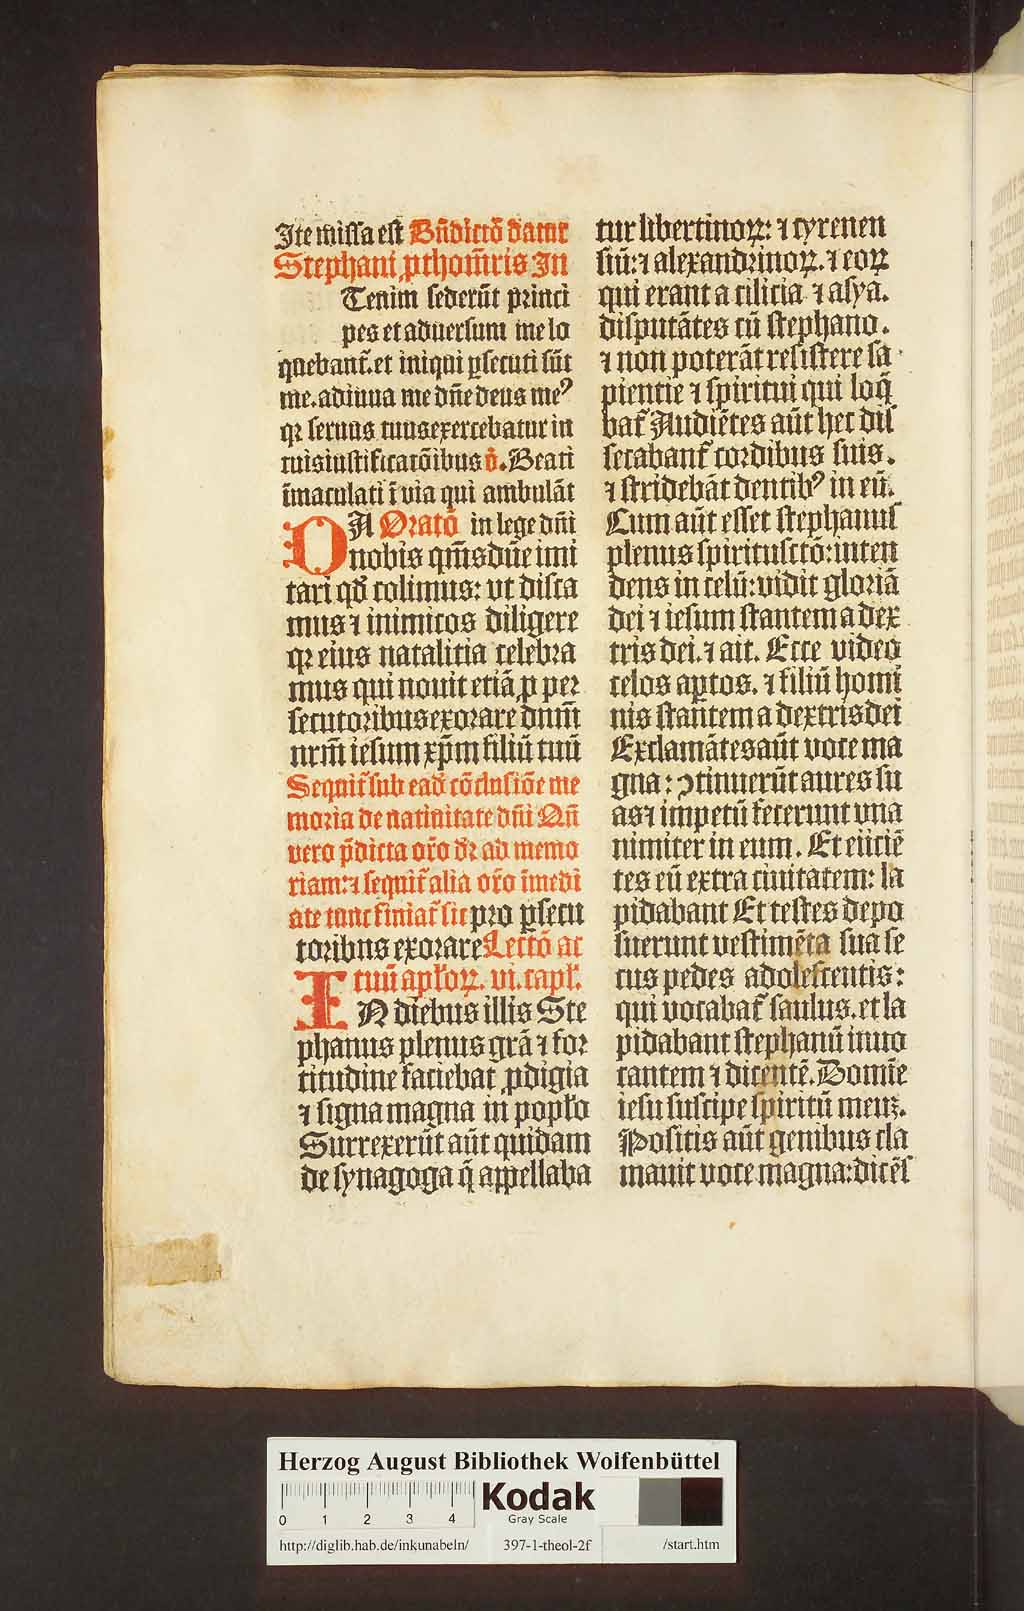 Ite missa est Bn̄dictō damr
Stephani ꝓthom̄ris In
Tenim sederūt princi
pes et aduersum me lo
quebant᷑.et iniqui ꝑsecuti sūt
me.adiuua me dn̄e deus meꝰ
qꝛ seruus tuus exercebatur in
tuis iustificatōibus ō. Beati
īmaculati ī via qui ambulāt
DA Oratō in lege dn̄i
nobis qm̄s dn̄e imi
tari qd̄ colimus: vt disca
mus ⁊ inimicos diligere
qꝛ eius natalitia celebra
mus qui nouit etiā ꝓ per
secutoribus exorare dnm̄
nrm̄ iesum xp̄m filiū tuū
Sequit᷑ sub ead̄ cōclusiōe me
moria de natiuitate dn̄i Qn̄
vero p̄dicta or̄o dꝛ̄ ad memo
riam:⁊ sequit᷑ alia or̄o īmedi
ate tunc finiat᷑ sic pro ꝑsecu
toribus exorare Lectō ac
tuū apl̄oꝝ. vi. capl̄.
IN diebus illis Ste
phanus plenus grā ⁊ for
titudine faciebat ꝓdigia
⁊ signa magna in popl̄o
Surrexerūt aūt quidam
de synagoga q̄ appellaba
tur libertinoꝝ: ⁊ cyrenen
siū: ⁊ alexandrinoꝝ. ⁊ eoꝝ
qui erant a cilicia ⁊ asya.
disputātes cū stephano.
⁊ non poterāt resistere sa
pientie ⁊ spiritui qui loq̄
bat᷑ Audiētes aūt hec dis
secabant᷑ cordibus suis.
⁊ stridebāt dentibꝰ in eū.
Cum aūt esset stephanus
plenus spiritu sctō: inten
dens in celū: vidit gloriā
dei ⁊ iesum stantem a dex
tris dei. ⁊ ait. Ecce video
celos aꝑtos. ⁊ filiū homī
nis stantem a dextris dei
Exclamātes aūt voce ma
gna: ꝯtinuerūt aures su
as ⁊ impetū fecerunt vna
nimiter in eum. Et eiiciē
tes eū extra ciuitatem: la
pidabant Et testes depo
suerunt vestimēta sua se
cus pedes adolescentis:
qui vocabat᷑ saulus. et la
pidabant stephanū inuo
cantem ⁊ dicentē. Domīe
iesu suscipe spiritū meuꝫ.
Positis aūt genibus cla
mauit voce magna: dicēs
Herzog August Bibliothek Wolfenbüttel
0 1 2 3 4
Kodak
Gray Scale
http://diglib.hab.de/inkunabeln/ 397-1-theol-2f /start.htm